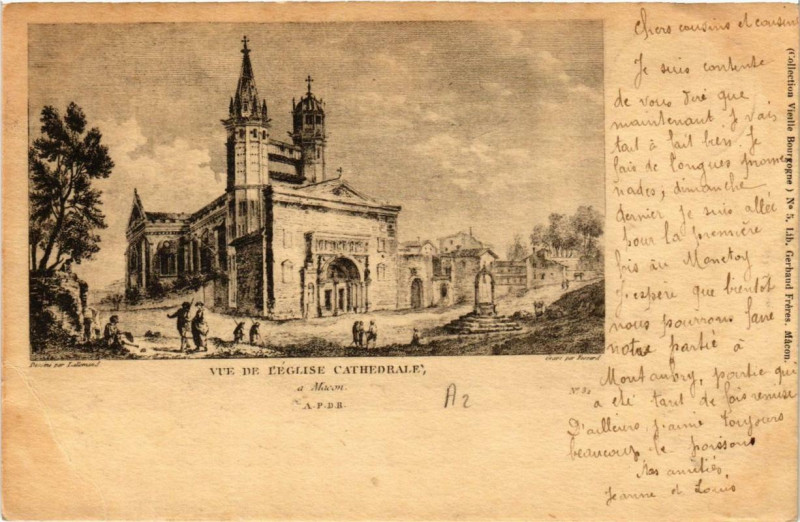 Chers cousins et cousines
Je suis contente
de vous dire que
maintenant je vais
tout à fait bien. Je
fais de longues prome
nades, dimanche
dernier je suis allée
pour la première
fois au
J'espère que bientôt
nous pourrons faire
notre partie à
Montaubry, partie qui
a été tant de fois remise
D'ailleurs, j'aime toujours
beaucoup le poisson
Nos amitiés
Jeanne et Louis
(Collection Vieille Bourgogne) No 5, Lib. Gerbaud Frères, Mâcon.
Dessiné par Lallemand.
VUE DE L'ÉGLISE CATHEDRALE,
a Mâcon.
A.P.D.R.
Gravé par
No.
A2